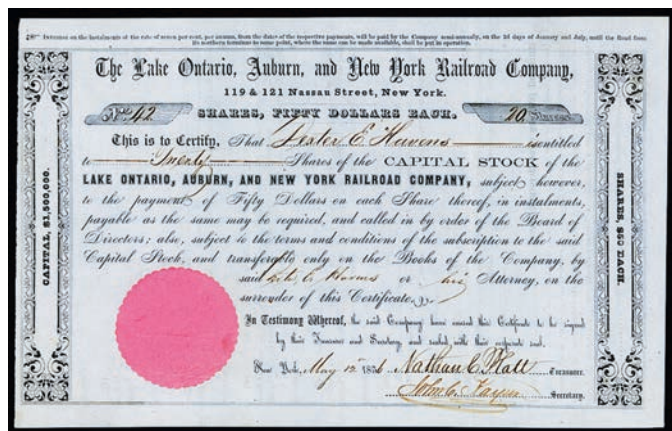 Interest on the instalments at the rate of seven per cent. per annum, from the dates of the respective payments, will be paid by the Company semi-annually, on the 2d days of January and July, until the Road from
its northern terminus to some point, where the same can be made available, shall be put in operation.
The Lake Ontario, Auburn, and New York Railroad Company,
119 & 121 Nassau Street, New York.
No. 42 SHARES, FIFTY DOLLARS EACH. 20 Shares
This is to Certify, That E. Havens is entitled
to Twenty Shares of the CAPITAL STOCK of the
LAKE ONTARIO, AUBURN, AND NEW YORK RAILROAD COMPANY, subject however,
to the payment of Fifty Dollars on each Share thereof, in instalments,
payable as the same may be required, and called in by order of the Board of
Directors; also, subject to the terms and conditions of the subscription to the said
Capital Stock, and transferable only on the Books of the Company, by
said Havens or his Attorney, on the
surrender of this Certificate.
In Testimony Whereof, the said Company have caused this Certificate to be signed
by their Treasurer and Secretary, and sealed with their corporate seal.
New York, May 12 1856 Nathan C. Platt Treasurer.
John C. Secretary.
CAPITAL, $1,500,000.
SHARES, $50 EACH.